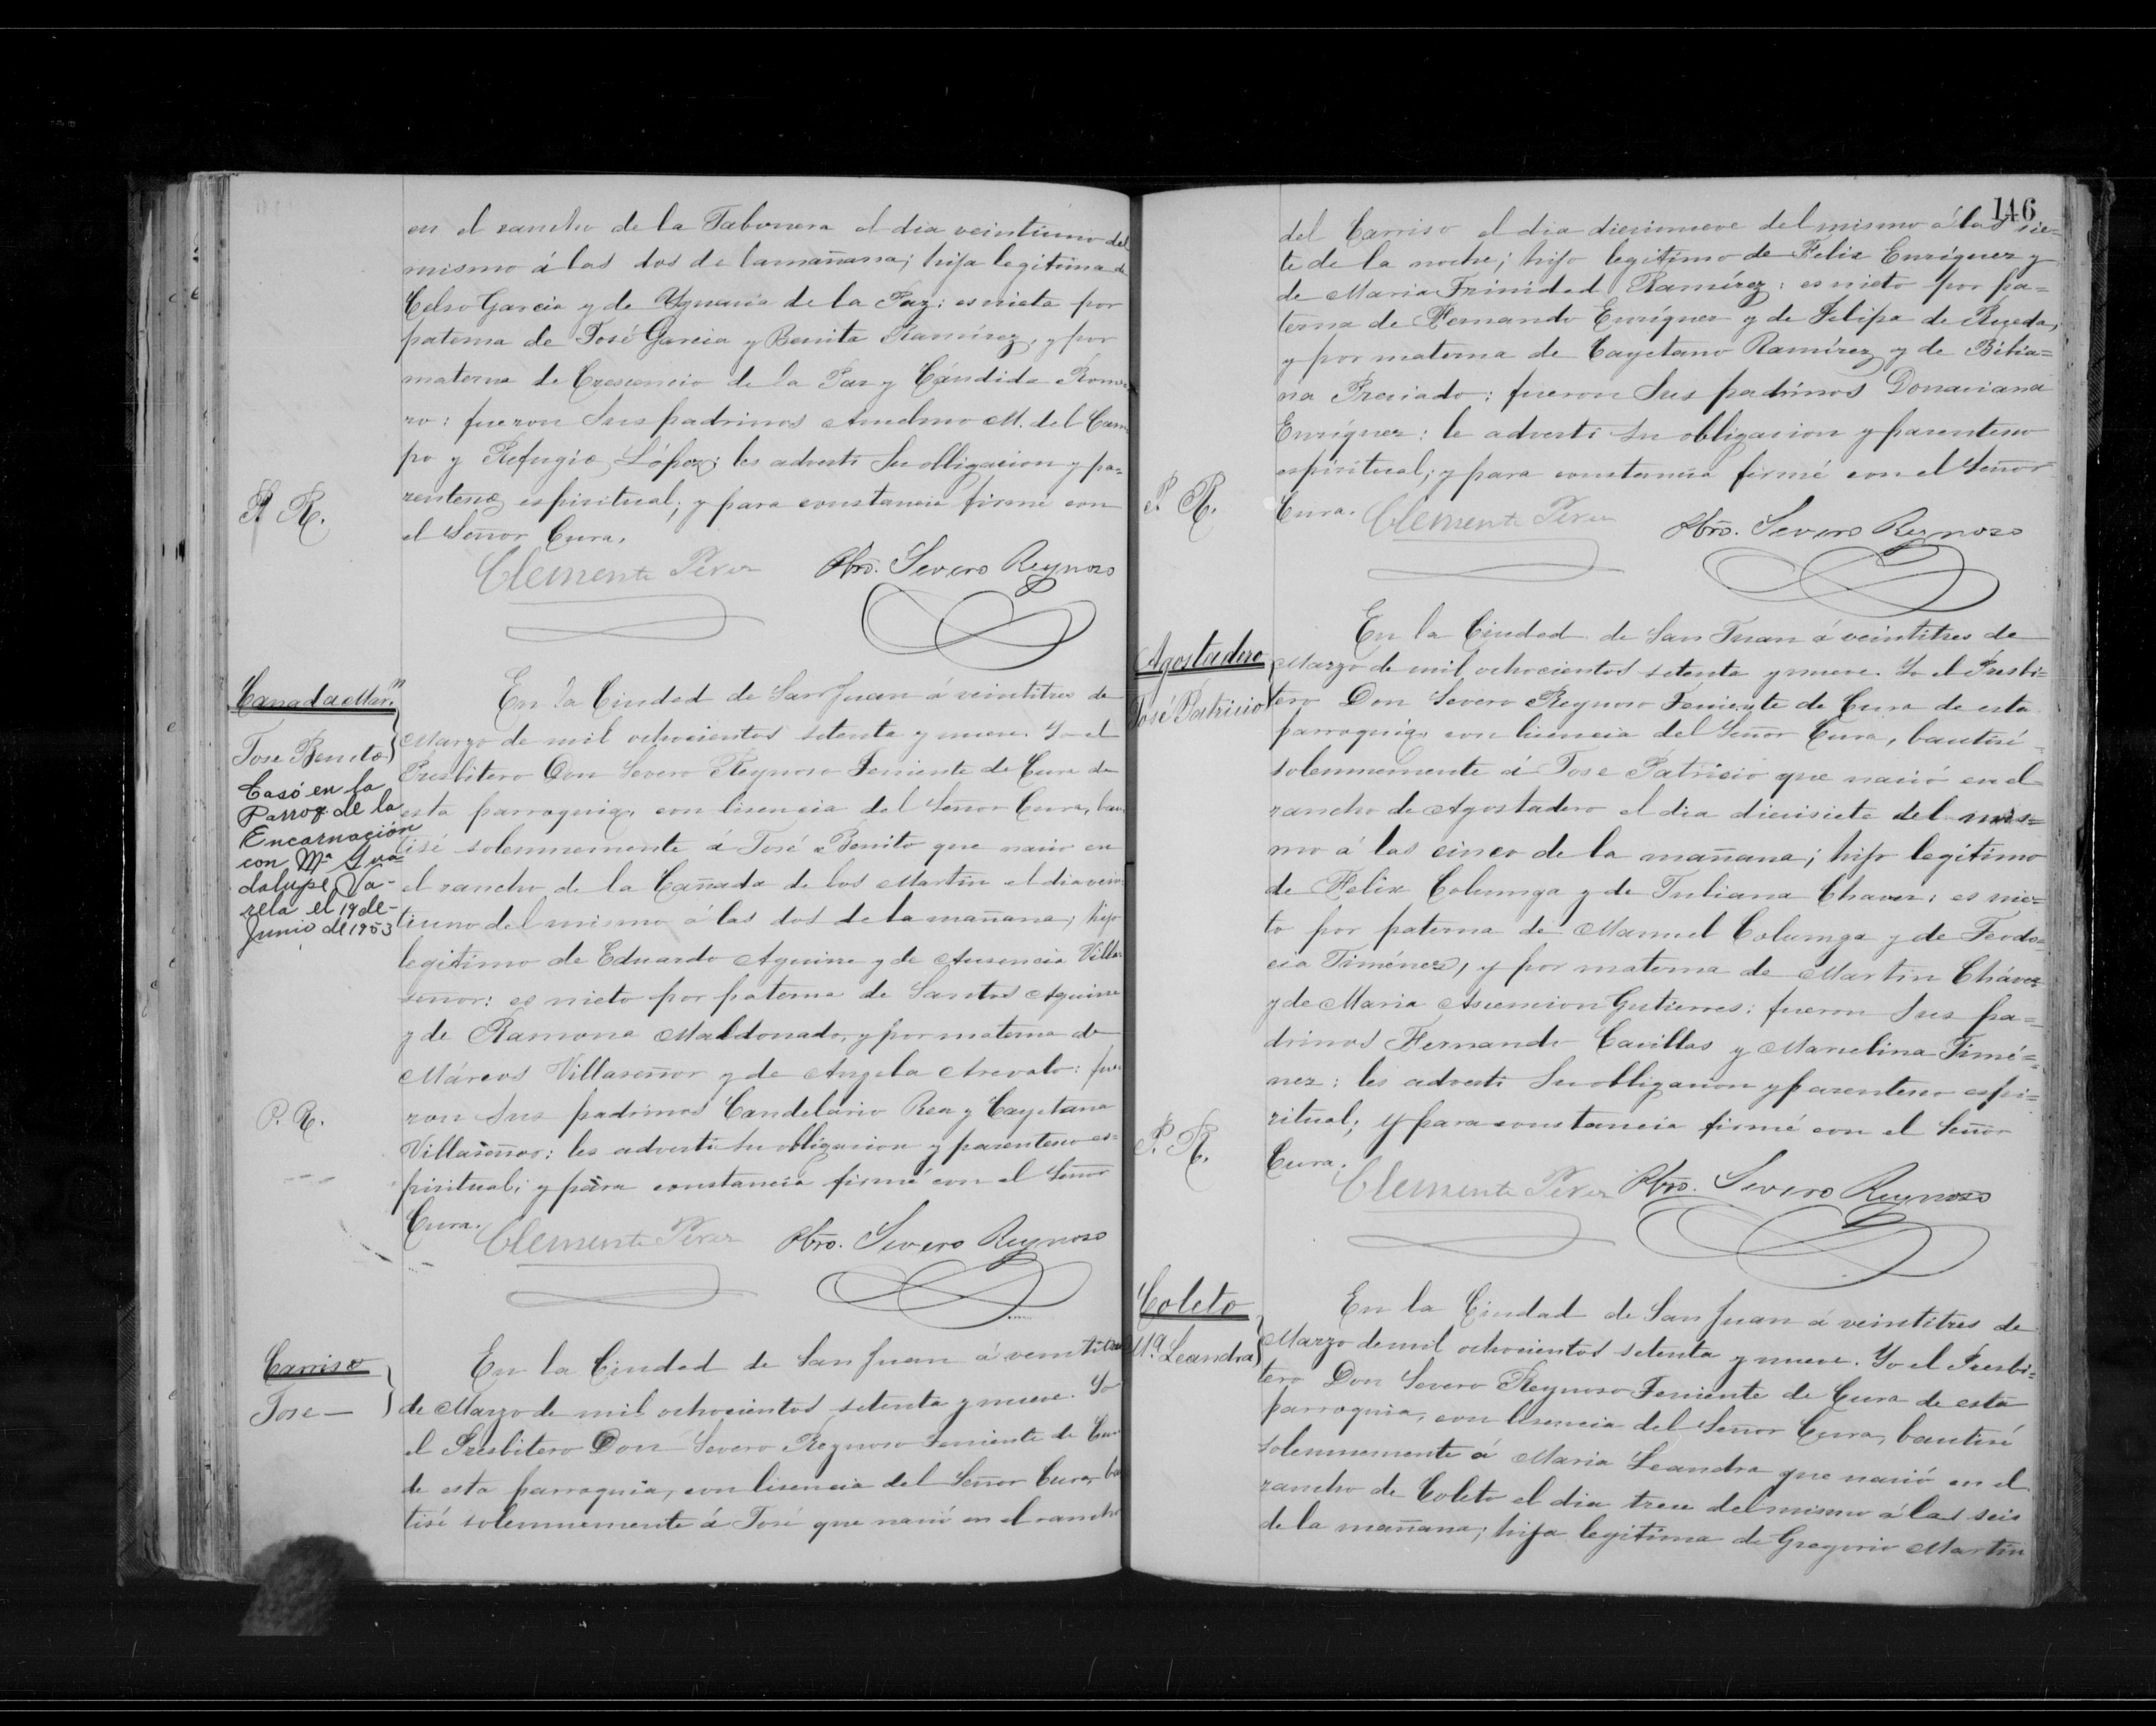 en el rancho de la Tabonera el dia veintiuno del
mismo á las dos de la mañana; hija legitima de
Celso Garcia y de Ygnacia de la Paz: es nieta por
paterna de José Garcia y Benita Ramírez, y por
materna de Crescencio de la Paz y Cándida Rome-
ro: fueron sus padrinos Anselmo M. del Cam
po y Refugio López; les advertí su obligacion y pa=
rentesco espiritual; y para constancia firmé con
P. R.
el Señor Cura.
Clemente Perez Pbro. Severo Reynoso
Cañada Mar.n
Jose Benito
Casó en la
Parroq de la
Encarnación
con Ma. Gua-
dalupe Va-
rela el 19 de-
Junio de 1953
En la Ciudad de San Juan á veintitres de
Marzo de mil ochocientos setenta y nueve. Yo el
Presbitero Don Severo Reynoso Teniente de Cura de
esta parroquia, con lisencia del Señor Cura, bau
tisé solemnemente á José Benito que nació en
el rancho de la Cañada de los Martin el dia vein
tiuno del mismo á las dos de la mañana; hijo
legitimo de Eduardo Aguirre y de Ausencia Villa-
señor: es nieto por paterna de Santos Aguirre
y de Ramona Maldonado, y por materna de
Márcos Villaseñor y de Angela Arevalo: fue
P. R.
ron sus padrinos Candelario Rea y Cayetana
Villaseñor: les advertí su obligacion y parentesco es=
piritual; y para constancia firmé con el Señor
Cura.
Clemente Perez Pbro. Severo Reynoso
Carriso
Jose —
En la Ciudad de San Juan á veintitres
de Marzo de mil ochocientos setenta y nueve. Yo
el Presbitero Don Severo Reynoso Teniente de Cura
de esta parroquia, con lisencia del Señor Cura, bau
tisé solemnemente á José que nació en el rancho
146
del Carriso el dia diecinueve del mismo á las sie=
te de la noche; hijo legitimo de Felix Enríquez y
de Maria Trinidad Ramírez: es nieto por pa=
terna de Fernando Enríquez y de Felipa de Rueda,
y por materna de Cayetano Ramírez y de Bibia=
na Preciado: fueron sus padrinos Donaciana
Enríquez: le advertí su obligacion y parentesco
espiritual; y para constancia firmé con el Señor
P. R.
Cura.
Clemente Perez Pbro. Severo Reynoso
Agostadero
José Patricio
En la Ciudad de San Juan á veintitres de
Marzo de mil ochocientos setenta y nueve. Yo el Presbi=
tero Don Severo Reynoso Teniente de Cura de esta
parroquia, con licencia del Señor Cura, bautisé
solemnemente á Jose Patricio que nació en el
rancho de Agostadero el dia diecisiete del mis=
mo á las cinco de la mañana; hijo legítimo
de Felix Columga y de Juliana Chavez: es nie=
to por paterna de Manuel Columga y de Teodo=
cia Jiménez, y por materna de Martin Chávez
y de Maria Ascencion Gutierres: fueron sus pa=
drinos Fernando Casillas y Marcelina Jimé=
nez: les advertí su obligacion y parentesco espi=
ritual; y para constancia firmé con el Señor
P. R.
Cura.
Clemente Perez Pbro. Severo Reynoso
Coleto
Ma. Leandra
En la Ciudad de San Juan á veintitres de
Marzo de mil ochocientos setenta y nueve. Yo el Presbi=
tero Don Severo Reynoso Teniente de Cura de esta
parroquia, con lisencia del Señor Cura, bautisé
solemnemente á Maria Leandra que nació en el
rancho de Coleto el dia trece del mismo á las seis
de la mañana; hija legitima de Gregorio Martin